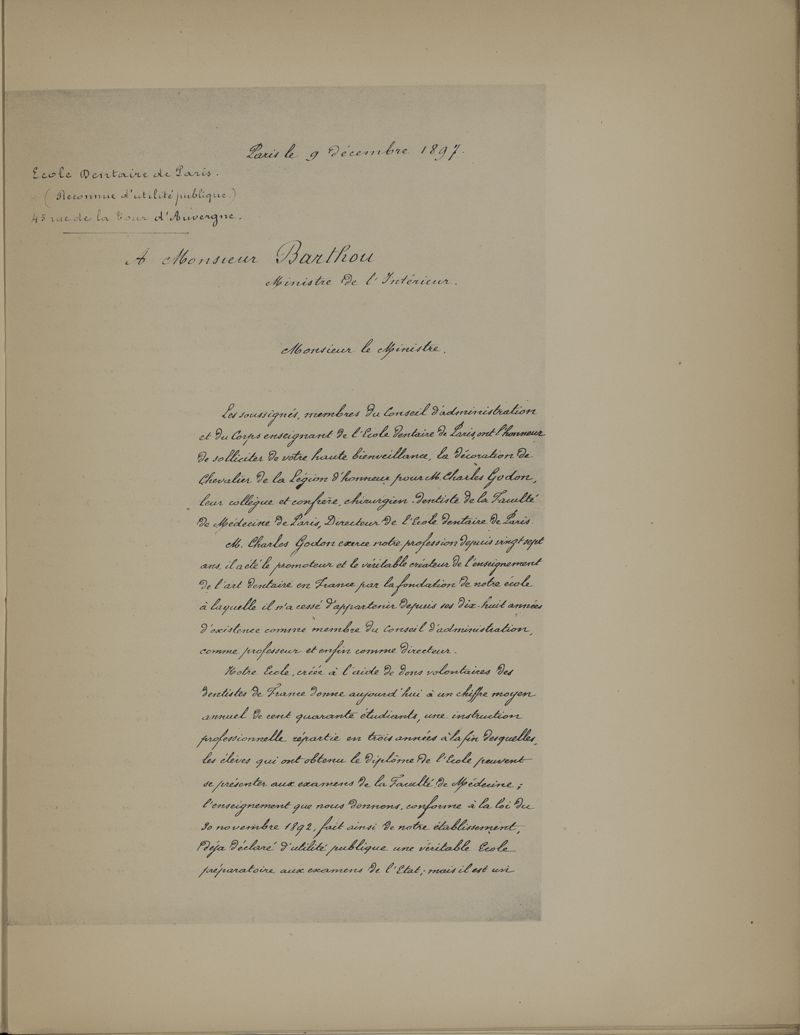 Paris le 9 Décembre 1897.
Ecole Dentaire de Paris.
(Reconnue d'utilité publique.)
45 rue de la Tour d'Auvergne.
A Monsieur Barthou
Ministre de l'Intérieur.
Monsieur le Ministre.
Les soussignés, membres du Conseil d'administration
et du Corps enseignant de l'Ecole dentaire de Paris, ont l'honneur
de solliciter de votre haute bienveillance, la décoration de
Chevalier de la Légion d'honneur pour M. Charles Godon,
leur collègue et confrère, chirurgien-Dentiste de la Faculté
de Médecine de Paris, Directeur de l'Ecole dentaire de Paris.
M. Charles Godon exerce notre profession depuis vingt sept
ans, il a été le promoteur et le véritable créateur de l'enseignement
de l'art dentaire en France par la fondation de notre école
à laquelle il n'a cessé d'appartenir depuis ses dix-huit années
d'existence comme membre du Conseil d'administration,
comme professeur et enfin comme directeur.
Notre Ecole, créée à l'aide de dons volontaires des
dentistes de France donne aujourd'hui à un chiffre moyen
annuel de cent quarante étudiants, une instruction
professionnelle répartie en trois années à la fin desquelles,
les élèves qui ont obtenu le diplôme de l'Ecole peuvent
se présenter aux examens de la Faculté de Médecine;
l'enseignement que nous donnons, conforme à la loi du
30 novembre 1892, fait ainsi de notre établissement,
Déja déclaré d'utilité publique une véritable Ecole
préparatoire aux examens de l'Etat; mais il est un